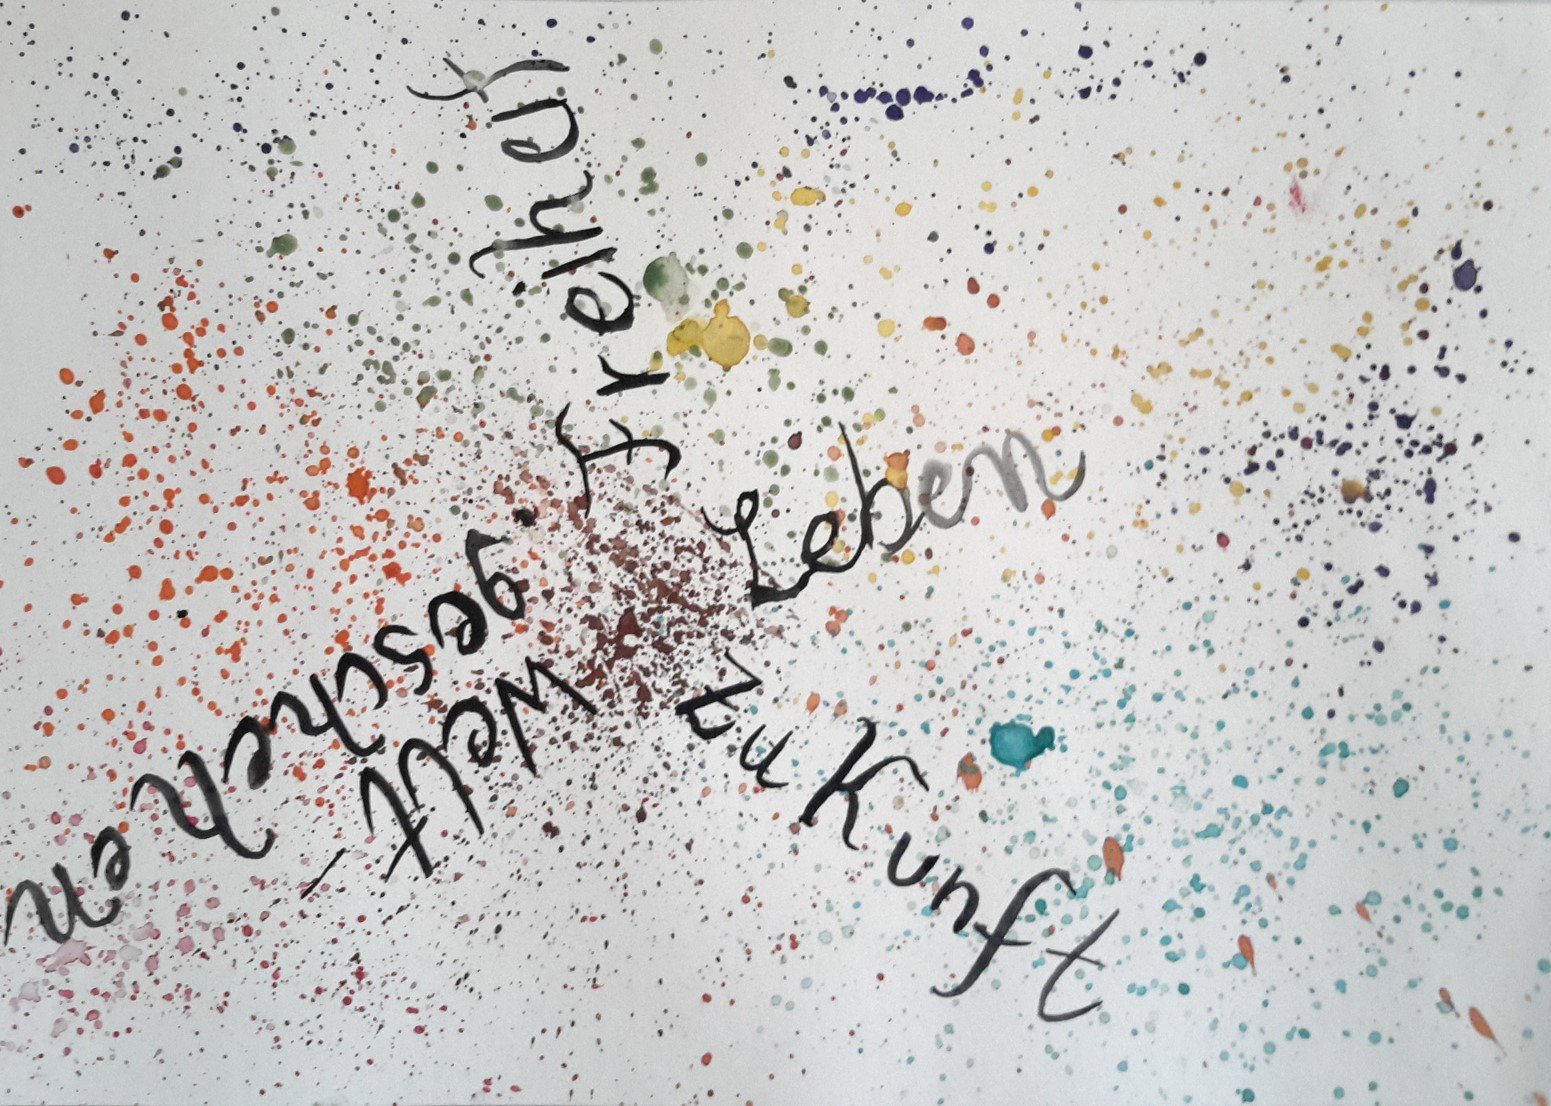 freiheit
Leben
zukunft
Welt
geschehen